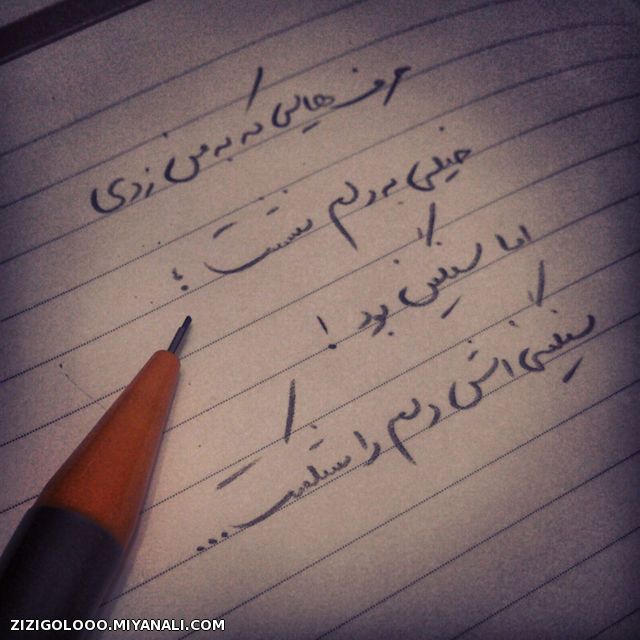 حرف هایی که به من زدی
خیلی به دلم نشست ؛
اما سنگین بود !
سنگینی اش دلم را شکست ...
ZIZIGOLOOO.MIYANALI.COM